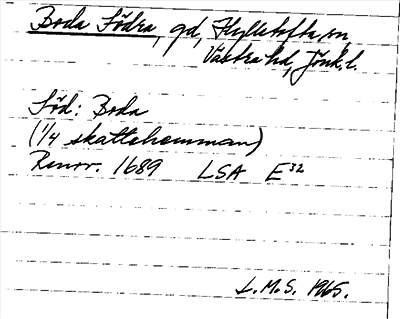 Boda Södra, gd, Hylletofta sn
Västra hd, Jönk. l.
Söd: Boda
(1/4 skattehemman)
Renov. 1689 LSA E32
L.M.S. 1965.